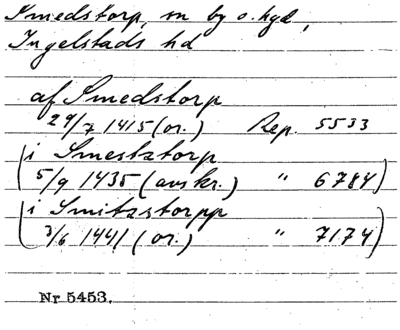 Smedstorp, sn by o. hgd,
Ingelstads hd
af Smedstorp
29/7 1415 (or.) Rep. 5533
(i Smestztorp
5/9 1435 (avskr.) " 6784)
(i Smitzstorpp
3/6 1441 (or.) " 7174)
Nr 5453.